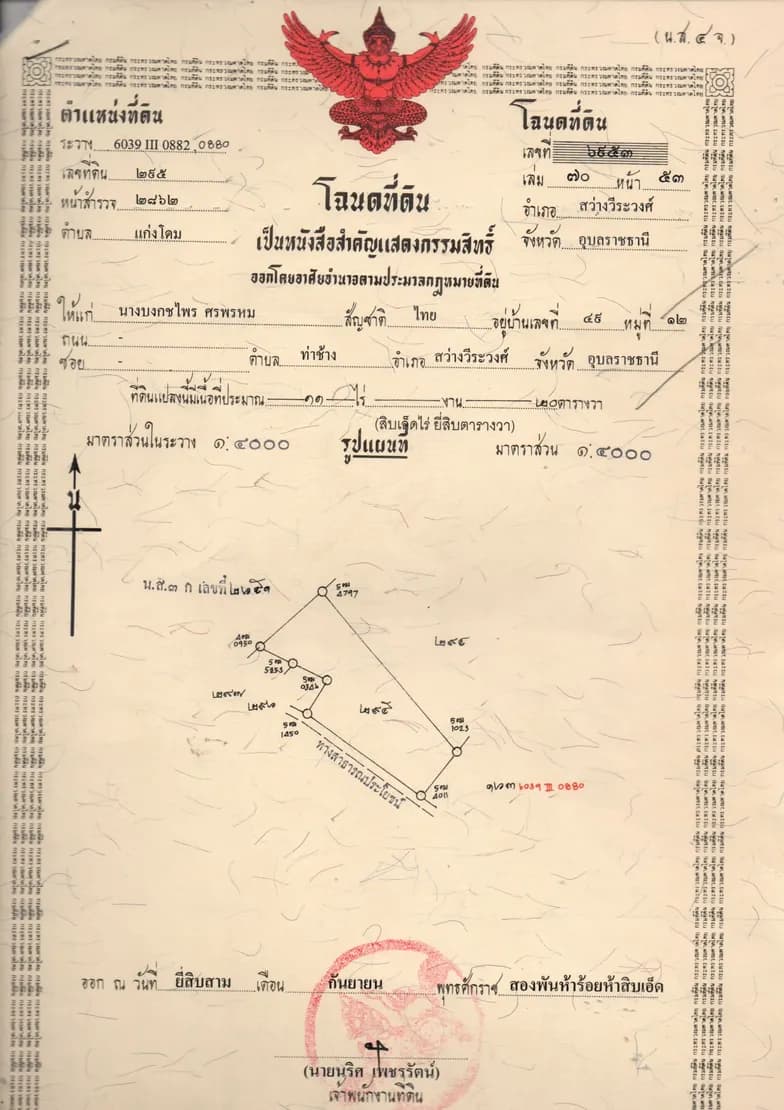 (น.ส. ๔ จ.)
ตำแหน่งที่ดิน
ระวาง 6039 III 0882 ,0880
เลขที่ดิน ๒๙๕
หน้าสำรวจ ๒๘๖๒
ตำบล แก่งโดม
โฉนดที่ดิน
เลขที่ ๖๙๕๓
เล่ม ๗๐ หน้า ๕๓
อำเภอ สว่างวีระวงศ์
จังหวัด อุบลราชธานี
โฉนดที่ดิน
เป็นหนังสือสำคัญแสดงกรรมสิทธิ์
ออกโดยอาศัยอำนาจตามประมวลกฎหมายที่ดิน
ให้แก่ นางบงกชไพร ศรพรหม สัญชาติ ไทย อยู่บ้านเลขที่ ๔๙ หมู่ที่ ๑๒
ถนน -
ซอย - ตำบล ท่าช้าง อำเภอ สว่างวีระวงศ์ จังหวัด อุบลราชธานี
ที่ดินแปลงนี้มีเนื้อที่ประมาณ ๑๑ ไร่ - งาน ๒๐ ตารางวา
(สิบเอ็ดไร่ ยี่สิบตารางวา)
มาตราส่วนในระวาง ๑:๔๐๐๐ รูปแผนที่ มาตราส่วน ๑:๔๐๐๐
น
น.ส.๓ ก เลขที่
4797
0930
๒๙๔
5853
0346
๒๙๗
๒๙๖
๒๙๕
1450
1023
ทางสาธารณประโยชน์
4011
๖๐๓๙ III 0880
ออก ณ วันที่ ยี่สิบสาม เดือน กันยายน พุทธศักราช สองพันห้าร้อยห้าสิบเอ็ด
(นายนริศ เพชรรัตน์)
เจ้าพนักงานที่ดิน